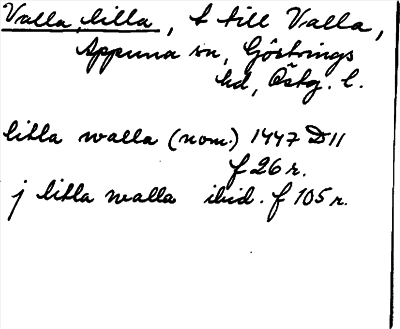 Valla, lilla, t till Valla,
Appuna sn, Göstrings
hd, Östg. l.
litla walla (nom.) 1447 D11
f 26 r.
j litla walla ibid. f 105 r.